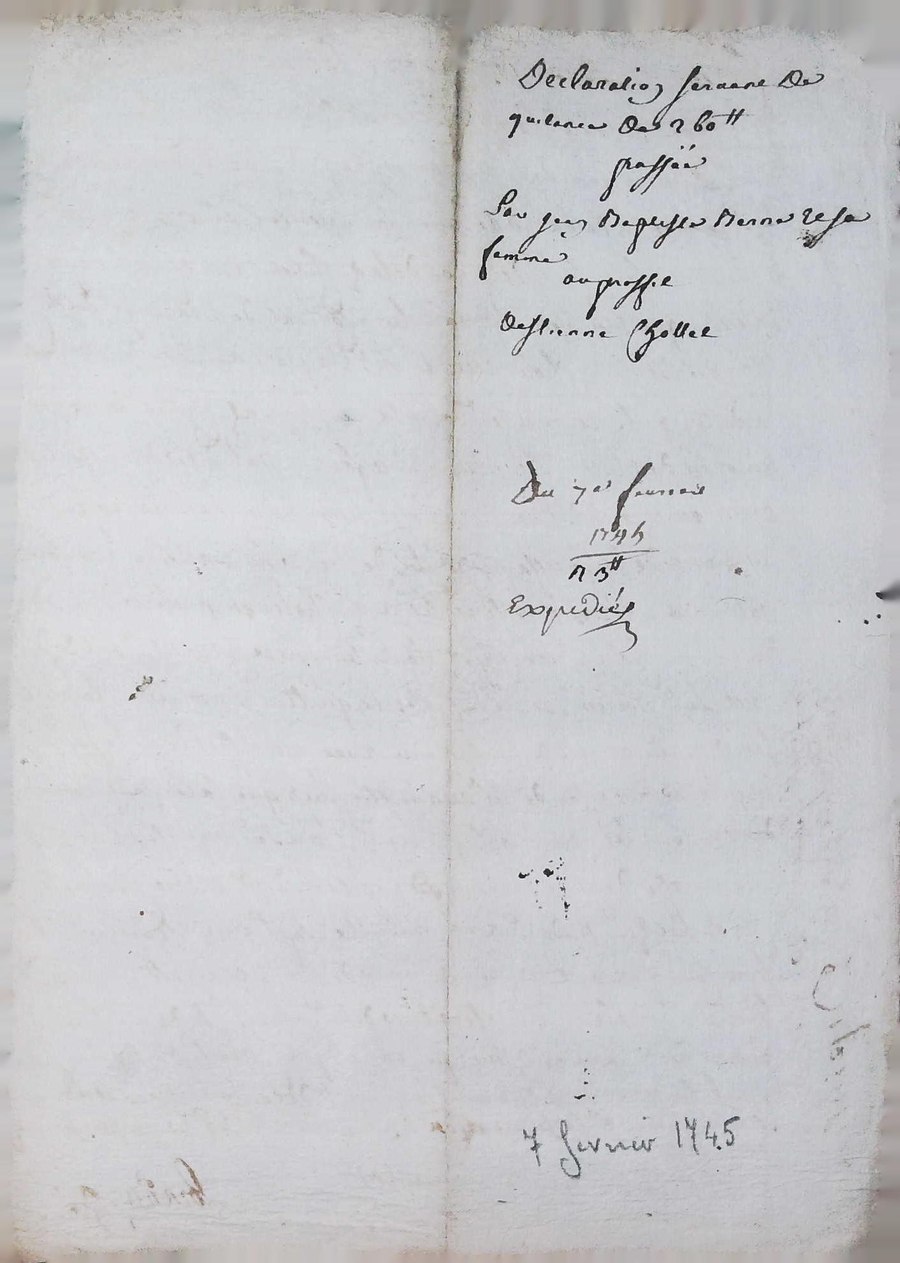 Declaration servant de
quitance de 260ᵗᵗ
passée
Par jean Baptiste Berne et sa
femme
au proffit
destienne Chollet
Du 7e fevrier
1745
13ᵗᵗ
Expediée
7 fevrier 1745